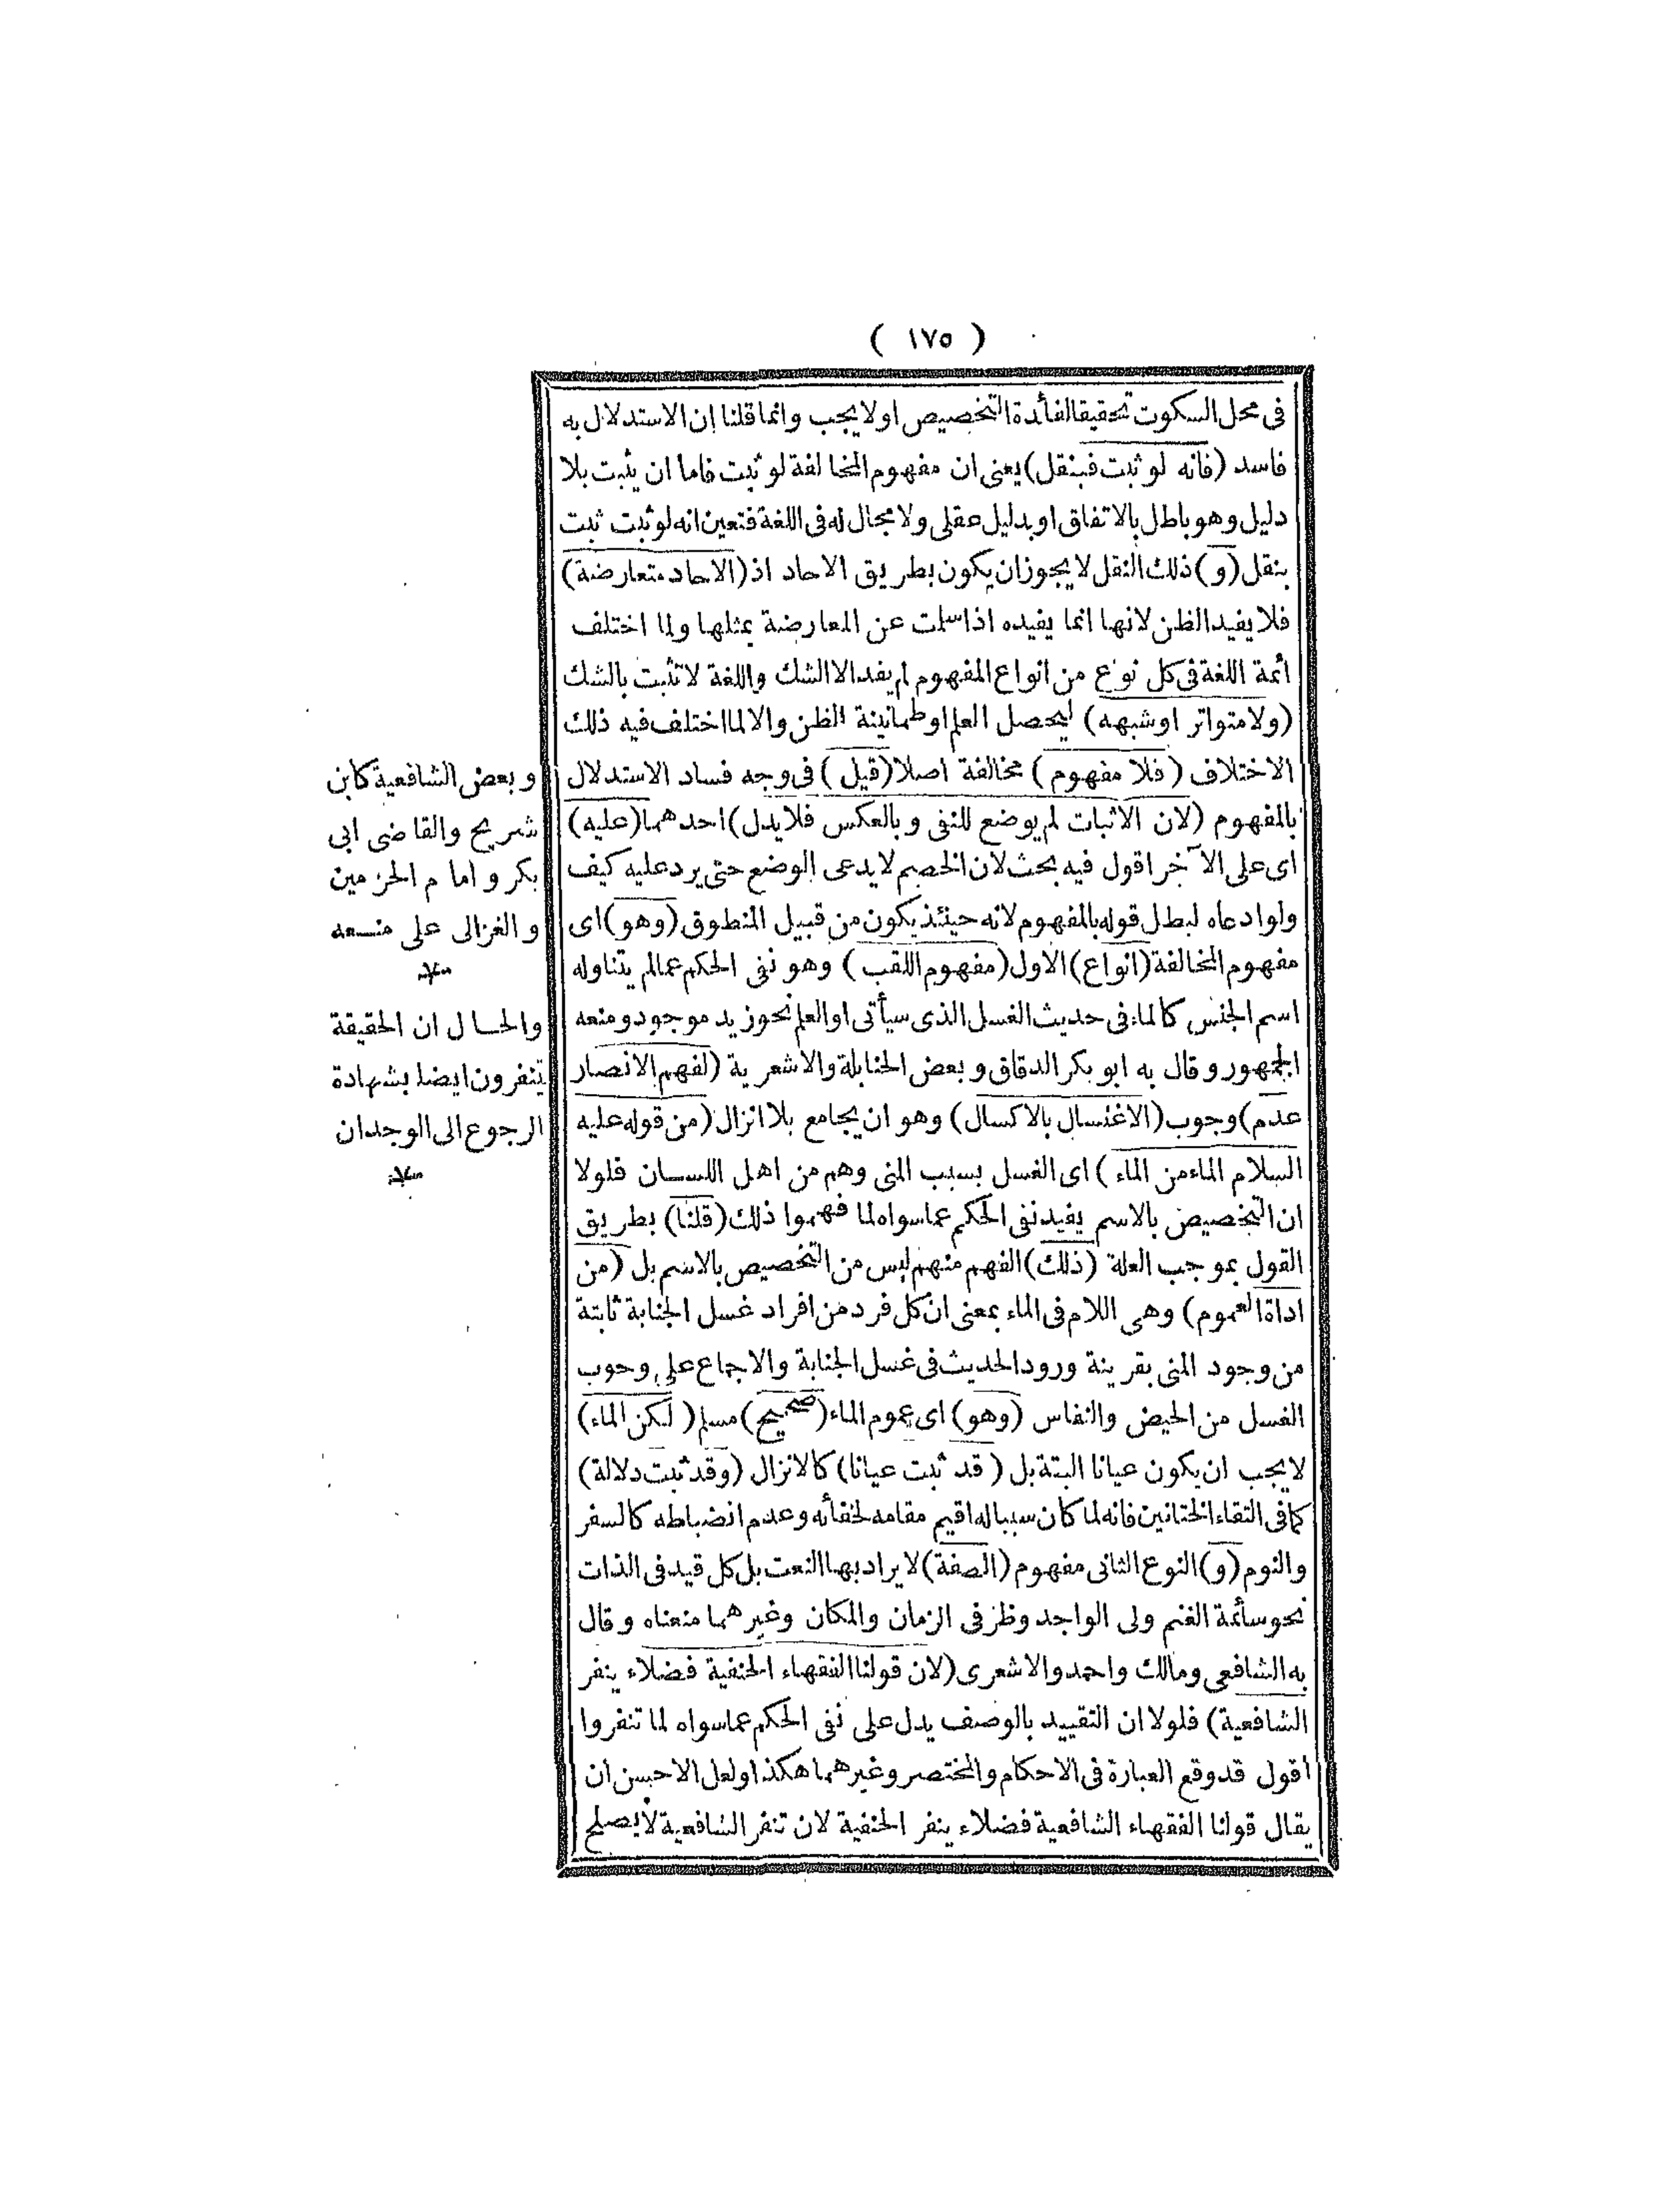 ( ١٧٥ )
فى محل السكوت تحقيقا لفائدة التخصيص اولا يجب وانما قلنا ان الاستدلال به
فاسد (فانه لو ثبت فبنقل) يعنى ان مفهوم المخالفة لو ثبت فاما ان يثبت بلا
دليل وهو باطل بالاتفاق او بدليل عقلى ولا مجال له فى اللغة فتعين انه لو ثبت ثبت
بنقل (و) ذلك النقل لا يجوز ان يكون بطريق الاحاد اذ (الاحاد متعارضة)
فلا يفيد الظن لانها انما يفيده اذا سلمت عن المعارضة بمثلها ولما اختلف
أئمة اللغة فى كل نوع من انواع المفهوم لم يفد الا الشك واللغة لا تثبت بالشك
(ولا متواتر او شبهه) ليحصل العلم او طمانينة الظن والا لما اختلف فيه ذلك
الاختلاف (فلا مفهوم) مخالفة اصلا (قيل) فى وجه فساد الاستدلال
بالمفهوم (لان الاثبات لم يوضع للنفى وبالعكس فلا يدل) احدهما (عليه)
اى على الآخر اقول فيه بحث لان الخصم لا يدعى الوضع حتى يرد عليه كيف
ولو ادعاه لبطل قوله بالمفهوم لانه حينئذ يكون من قبيل المنطوق (وهو) اى
مفهوم المخالفة (انواع) الاول (مفهوم اللقب) وهو نفى الحكم عما لم يتناوله
اسم الجنس كالماء فى حديث الغسل الذى سيأتى او العلم نحو زيد موجود ومنعه
الجمهور وقال به ابو بكر الدقاق وبعض الحنابلة والاشعرية (لفهم الانصار
عدم) وجوب (الاغتسال بالاكسال) وهو ان يجامع بلا انزال (من قوله عليه
السلام الماء من الماء) اى الغسل بسبب المنى وهم من اهل اللسان فلولا
ان التخصيص بالاسم يفيد نفى الحكم عما سواه لما فهموا ذلك (قلنا) بطريق
القول بموجب العلة (ذلك) الفهم منهم ليس من التخصيص بالاسم بل (من
اداة العموم) وهى اللام فى الماء بمعنى ان كل فرد من افراد غسل الجنابة ثابتة
من وجود المنى بقرينة ورود الحديث فى غسل الجنابة والاجماع على وجوب
الغسل من الحيض والنفاس (وهو) اى عموم الماء (صحيح) مسلم (لكن الماء)
لا يجب ان يكون عيانا البتة بل (قد ثبت عيانا) كالانزال (وقد ثبت دلالة)
كما فى التقاء الختانين فانه لما كان سببا له اقيم مقامه لخفائه وعدم انضباطه كالسفر
والنوم (و) النوع الثانى مفهوم (الصفة) لا يراد بها النعت بل كل قيد فى الذات
نحو سائمة الغنم ولى الواجد وظرفى الزمان والمكان وغيرهما منعناه وقال
به الشافعى ومالك واحمد والاشعرى (لان قولنا الفقهاء الحنفية فضلاء ينفر
الشافعية) فلولا ان التقييد بالوصف يدل على نفى الحكم عما سواه لما تنفروا
اقول قد وقع العبارة فى الاحكام والمختصر وغيرهما هكذا ولعل الاحسن ان
يقال قولنا الفقهاء الشافعية فضلاء ينفر الحنفية لان تنفر الشافعية لا يصلح
وبعض الشافعية كابن
شريح والقاضى ابى
بكر وامام الحرمين
والغزالى على منعه
والحال ان الحقيقة
يتنفرون ايضا بشهادة
الرجوع الى الوجدان